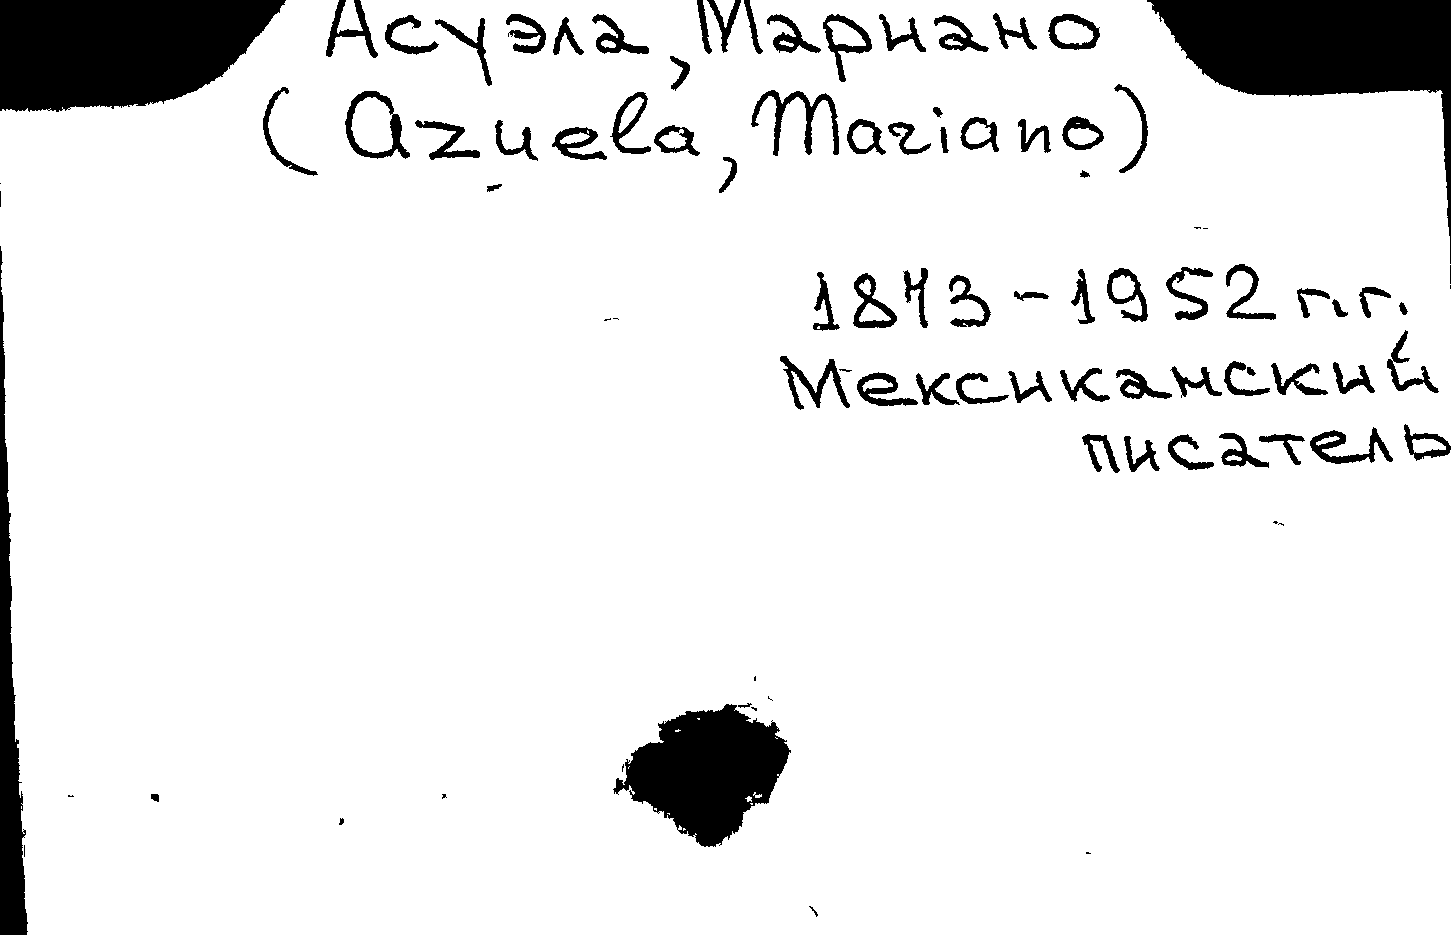 Асуэла, Мариано
(Azuela, Mariano)
1873-1952 г.г.
Мексиканский
писатель